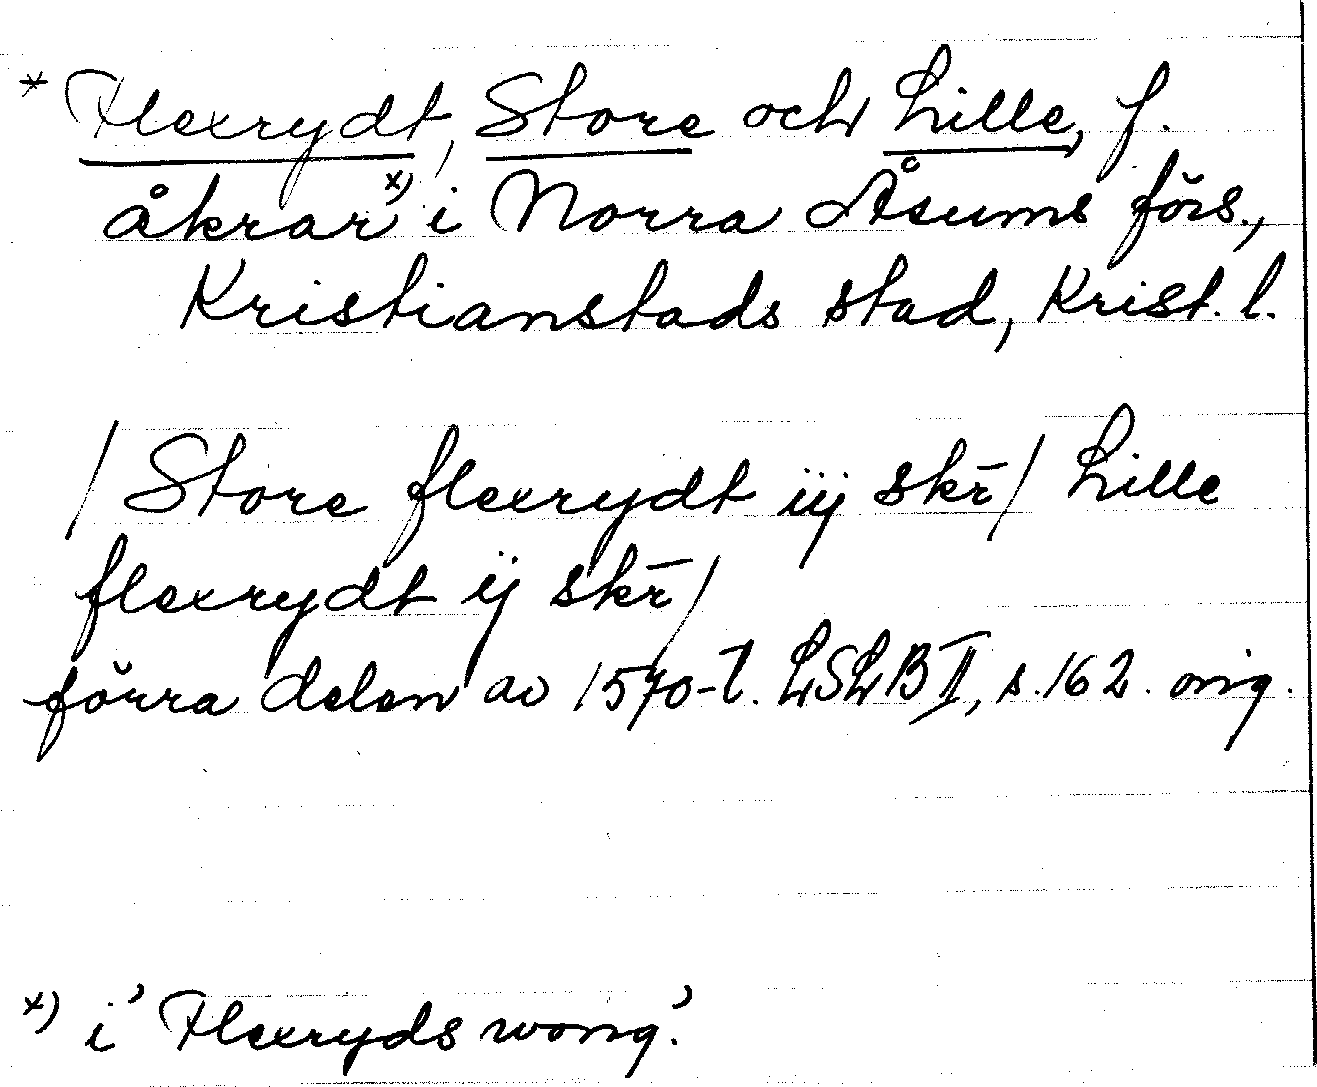 * Flexrydt, Store och Lille, f.
åkrar x) i Norra Åsums förs.,
Kristianstads stad, Krist. l.
/ Store flexrydt iij skr̄ / Lille
flexrydt ij skr̄ /
förra delen av 1570-t. LSLB II, s. 162. orig.
x) i 'Flexryds wong'.